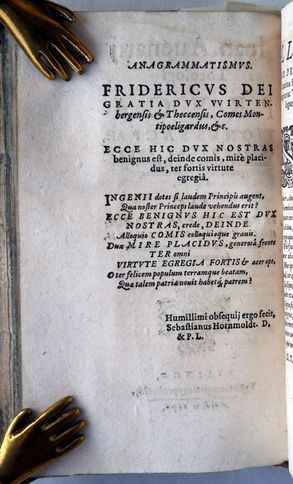 ANAGRAMMATISMVS.
FRIDERICVS DEI
GRATIA DVX VVIRTEN-
bergensis & Theccensis, Comes Mon-
tipoeligardus, &c.
ECCE HIC DVX NOSTRAS
benignus est, deinde comis, mirè placi-
dus, ter fortis virtute
egregiâ.
INGENII dotes si laudem Principis augent,
Qua noster Princeps laude vehendus erit?
ECCE BENIGNVS HIC EST DVX
NOSTRAS, crede, DEINDE.
Alloquio COMIS colloquioque gravis.
Dux MIRE PLACIDVS, generosâ fronte
TER omni
VIRTVTE EGREGIA FORTIS & acer ope,
O ter felicem populum terramque beatam,
Quæ talem patria novit habetq; patrem?
Humillimi obsequij ergo fecit,
Sebastianus Hornmoldt. D.
& P. L.